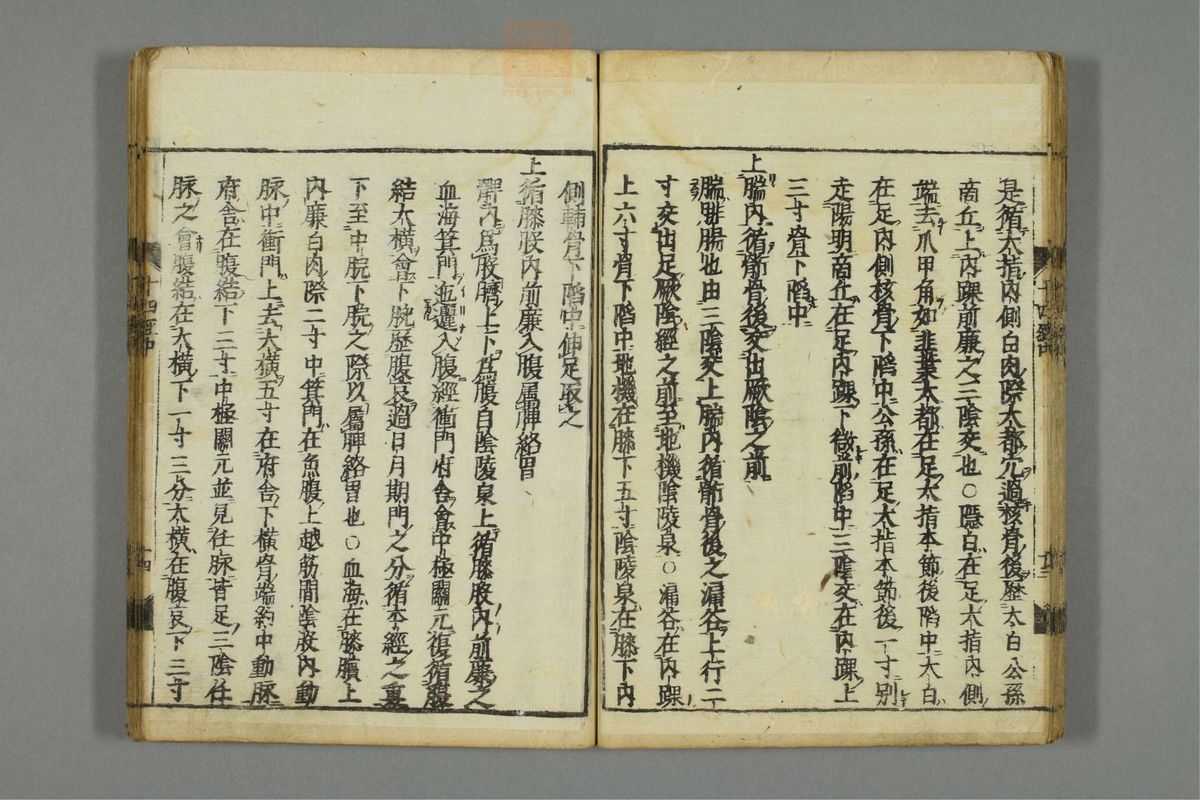 是循大指內側白肉際大都穴過核骨後歷太白公孫
商丘上內踝前廉之三陰交也○隱白在足大指內側
端去爪甲角如韭葉大都在足大指本節後陷中太白
在足內側核骨下陷中公孫在足大指本節後一寸別
走陽明商丘在足內踝下微前陷中三陰交在內踝上
三寸骨下陷中
上腨內循䯒骨後交出厥陰之前
腨腓腸也由三陰交上腨內循䯒骨後之漏谷上行二
寸交出足厥陰經之前至地機陰陵泉○漏谷在內踝
上六寸骨下陷中地機在膝下五寸陰陵泉在膝下內
十四經中
十三
側輔骨下陷中伸足取之
上循膝股內前廉入腹屬脾絡胃
髀內爲股臍上下爲腹自陰陵泉上循膝股內前廉之
血海箕門迤邐入腹經衝門府舍會中極關元復循腹
結大橫會下脘歷腹哀過日月期門之分循本經之裏
下至中脘下脘之際以屬脾絡胃也○血海在膝臏上
內廉白肉際二寸中箕門在魚腹上越筋間陰股內動
脉中衝門上去大橫五寸在府舍下橫骨端約中動脉
府舍在腹結下三寸中極關元並見任脉皆足三陰任
脉之會腹結在大橫下一寸三分大橫在腹哀下三寸
十四經中
十四